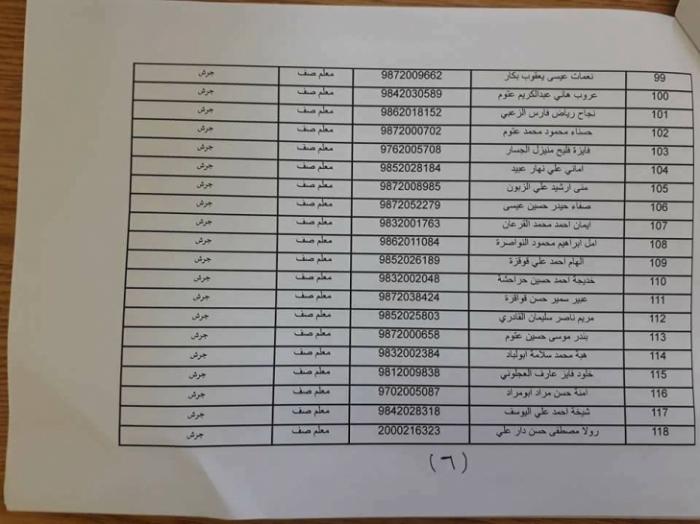 99 نعمات عيسى يعقوب بكار 9872009662 معلم صف جرش
100 عروب هاني عبدالكريم عتوم 9842030589 معلم صف جرش
101 نجاح رياض فارس الزعبي 9862018152 معلم صف جرش
102 حسناء محمود محمد عتوم 9872000702 معلم صف جرش
103 فايزة فليح منيزل الجسار 9762005708 معلم صف جرش
104 اماني علي نهار عبيد 9852028184 معلم صف جرش
105 منى ارشيد علي الزبون 9872008985 معلم صف جرش
106 صفاء حيدر حسين عيسى 9872052279 معلم صف جرش
107 ايمان احمد محمد القرعان 9832001763 معلم صف جرش
108 امل ابراهيم محمود النواصرة 9862011084 معلم صف جرش
109 الهام احمد علي قوقزة 9852026189 معلم صف جرش
110 خديجة احمد حسين حراحشة 9832002048 معلم صف جرش
111 عبير سمير حسن قواقزة 9872038424 معلم صف جرش
112 مريم ناصر سليمان القادري 9852025803 معلم صف جرش
113 بندر موسى حسين عتوم 9872000658 معلم صف جرش
114 هبة محمد سلامة ابولباد 9832002384 معلم صف جرش
115 خلود فايز عارف العجلوني 9812009838 معلم صف جرش
116 امنة حسن مراد ابومراد 9702005087 معلم صف جرش
117 شيخة احمد علي اليوسف 9842028318 معلم صف جرش
118 رولا مصطفى حسن دار علي 2000216323 معلم صف جرش
(٦)